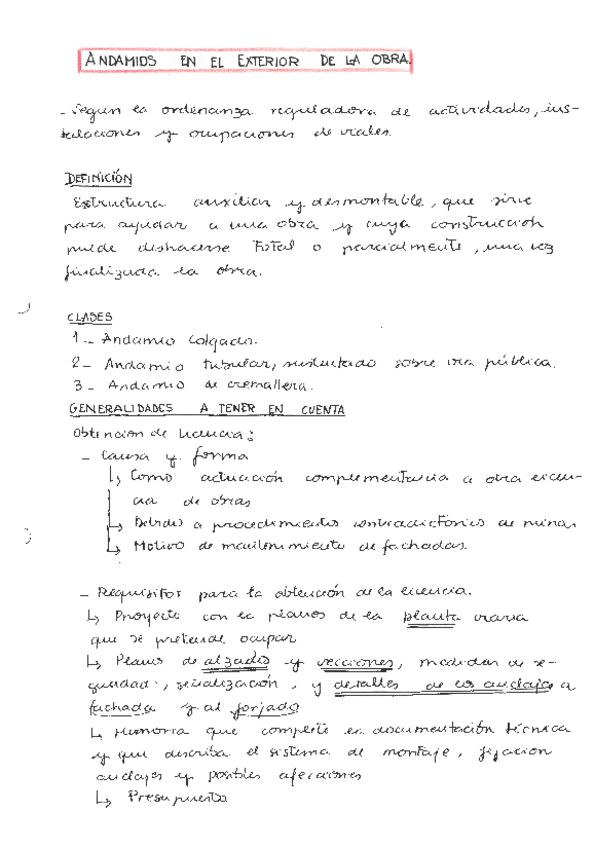 ANDAMIOS EN EL EXTERIOR DE LA OBRA.
- Segun la ordenanza reguladora de actividades, ins-
talaciones y ocupaciones de viales.
DEFINICIÓN
Estructura auxiliar y desmontable, que sirve
para ayudar a una obra y cuya construcción
puede deshacerse total o parcialmente, una vez
finalizada la obra.
CLASES
1.- Andamio colgado.
2- Andamio tubular, sustentado sobre vía pública.
3- Andamio de cremallera.
GENERALIDADES A TENER EN CUENTA
Obtención de licencia:
- Causa y forma
↳ Como actuación complementaria a otra licen-
cia de obras
↳ Debido a procedimientos contradictorios de ruinas
↳ Motivo de mantenimiento de fachadas.
- Requisitos para la obtención de la licencia.
↳ Proyecto con planos de la planta viaria
que se pretende ocupar
↳ Planos de alzados y secciones, medidas de se-
guridad, señalización, y detalles de los anclajes a
fachada y al forjado
↳ Memoria que complete la documentación técnica
y que describa el sistema de montaje, fijación
anclajes y posibles afecciones
↳ Presupuesto